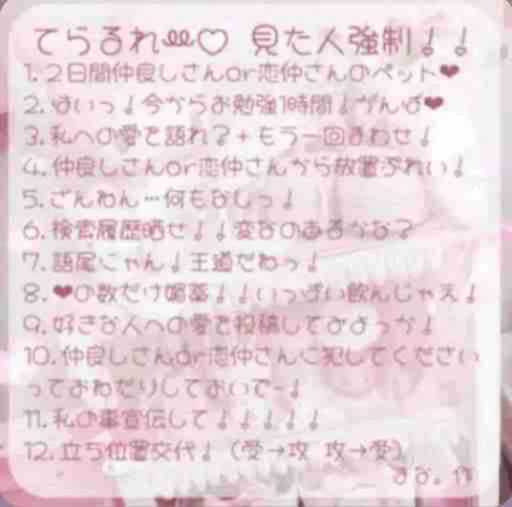 てらるれ 見た人強制!!
1. 2日間仲良しさんor恋仲さんのペット❤
2. はいっ!今からお勉強1時間!がんば❤
3. 私への愛を語れ?+もう一回まわせ!
4. 仲良しさんor恋仲さんから放置ぷれい!
5. ごんねん…何もなしっ!
6. 検索履歴晒せ!!変なのあるかな?
7. 語尾にゃん!王道だねっ!
8. ❤の数だけ媚薬!!いっぱい飲んじゃえ!
9. 好きな人への愛を投稿してみよっか!
10. 仲良しさんor恋仲さんに犯してください
っておねだりしておいで-!
11. 私の事宣伝して!!!!!
12. 立ち位置交代!(受→攻 攻→受)
作